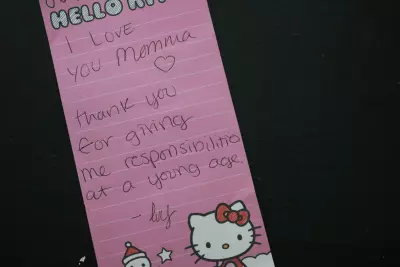 HELLO KI
I LOVE
you Momma
thank you
for giving
me responsibilitie
at a young age.